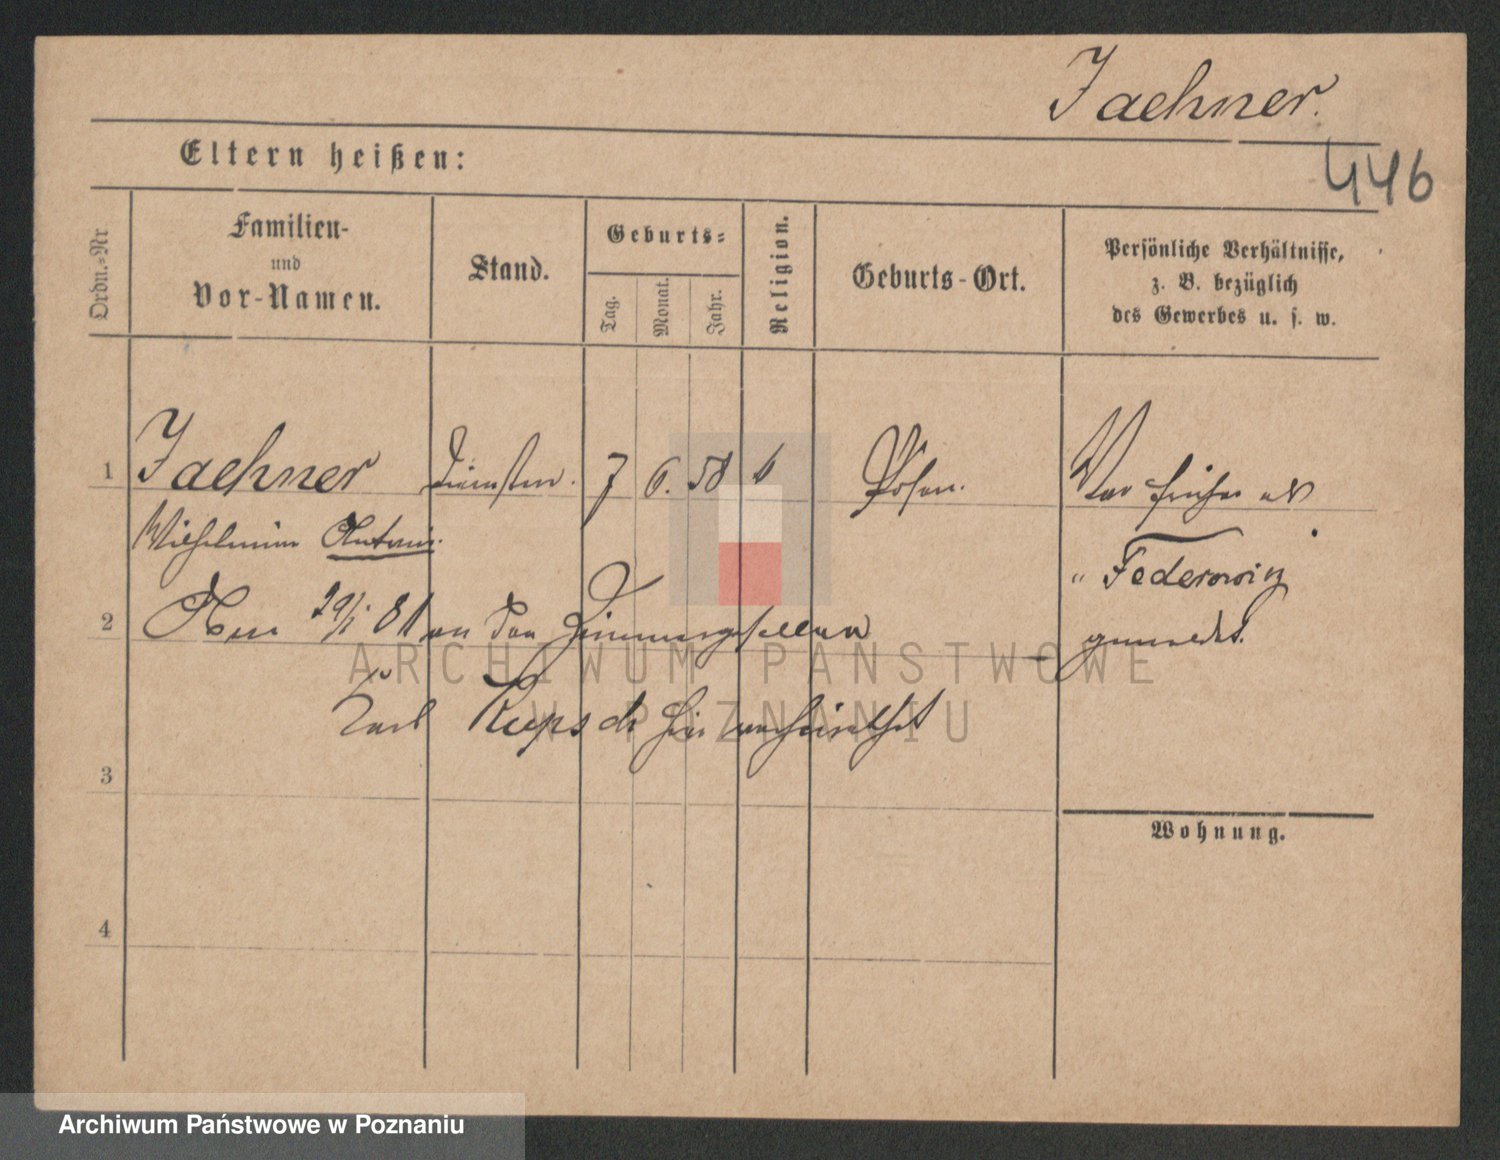 Jaehner.
446
Eltern heißen:
Ordn.=Nr
Familien-
und
Vor-Namen.
Stand.
Geburts=
Tag.
Monat.
Jahr.
Religion.
Geburts-Ort.
Persönliche Verhältnisse,
z. B. bezüglich
des Gewerbes u. s. w.
1 Jaehner 7 6. 58 Posen. War früher als
Wilhelmine Antonie
" Federowicz
2 29/1 81 an den Zimmergesellen
gemeldet.
Carl Kupsch hier verheirathet
3
Wohnung.
4
ARCHIWUM PAŃSTWOWE
W POZNANIU
Archiwum Państwowe w Poznaniu